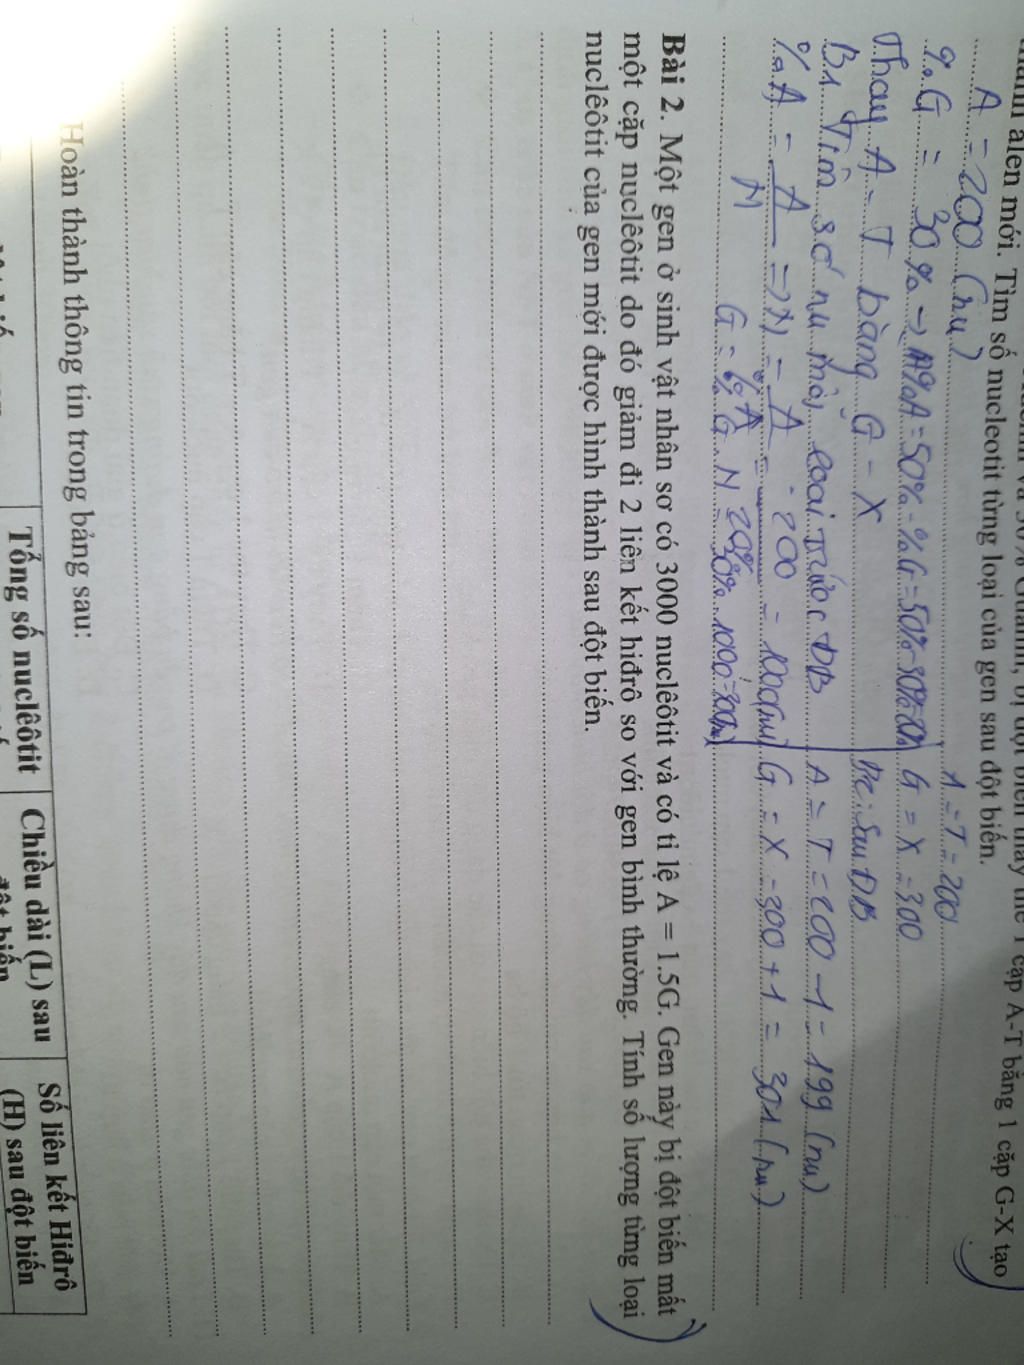 alen mới. Tìm số nucleotit từng loại của gen sau đột biến.
cặp A-T bằng 1 cặp G-X tạo
A = 200 (nu)
A = T = 200
%G = 30% → %A = 50% - %G = 50% - 30% =
G = X = 300
Thay A - T bằng G - X
Sau ĐB
B1 Tìm số nu mỗi loại trước ĐB
A = T = 200 - 1 = 199 (nu)
%A = A/N => N = A/%A = 200 = 1000 (nu)
G = X = 300 + 1 = 301 (nu)
G = %G . N = 30% . 1000 = 300
Bài 2. Một gen ở sinh vật nhân sơ có 3000 nuclêôtit và có tỉ lệ A = 1.5G. Gen này bị đột biến mất
một cặp nuclêôtit do đó giảm đi 2 liên kết hiđrô so với gen bình thường. Tính số lượng từng loại
nuclêôtit của gen mới được hình thành sau đột biến.
Hoàn thành thông tin trong bảng sau:
Tổng số nuclêôtit
Chiều dài (L) sau
đột biến
Số liên kết Hiđrô
(H) sau đột biến